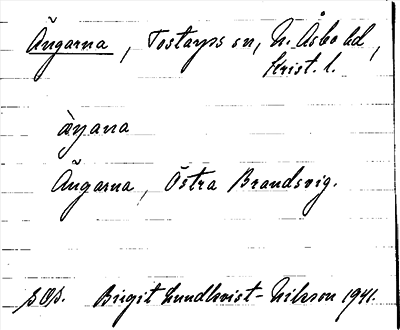 Ängarna, Tostarps sn, N. Åsbo hd,
Krist. l.
àŋana
Ängarna, Östra Brandsvig.
Birgit Lundkvist-Nilsson 1941.